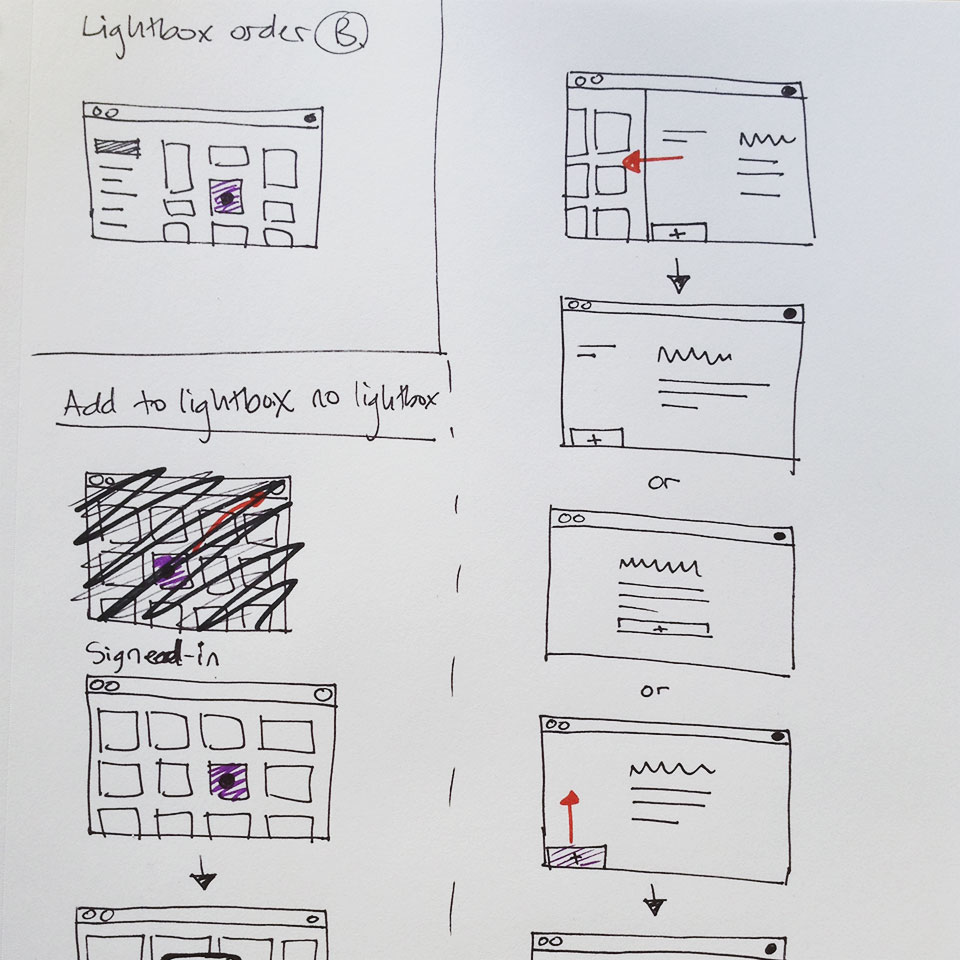 Lightbox order B
Add to lightbox no lightbox
Signed-in
+
+
or
+
or
+